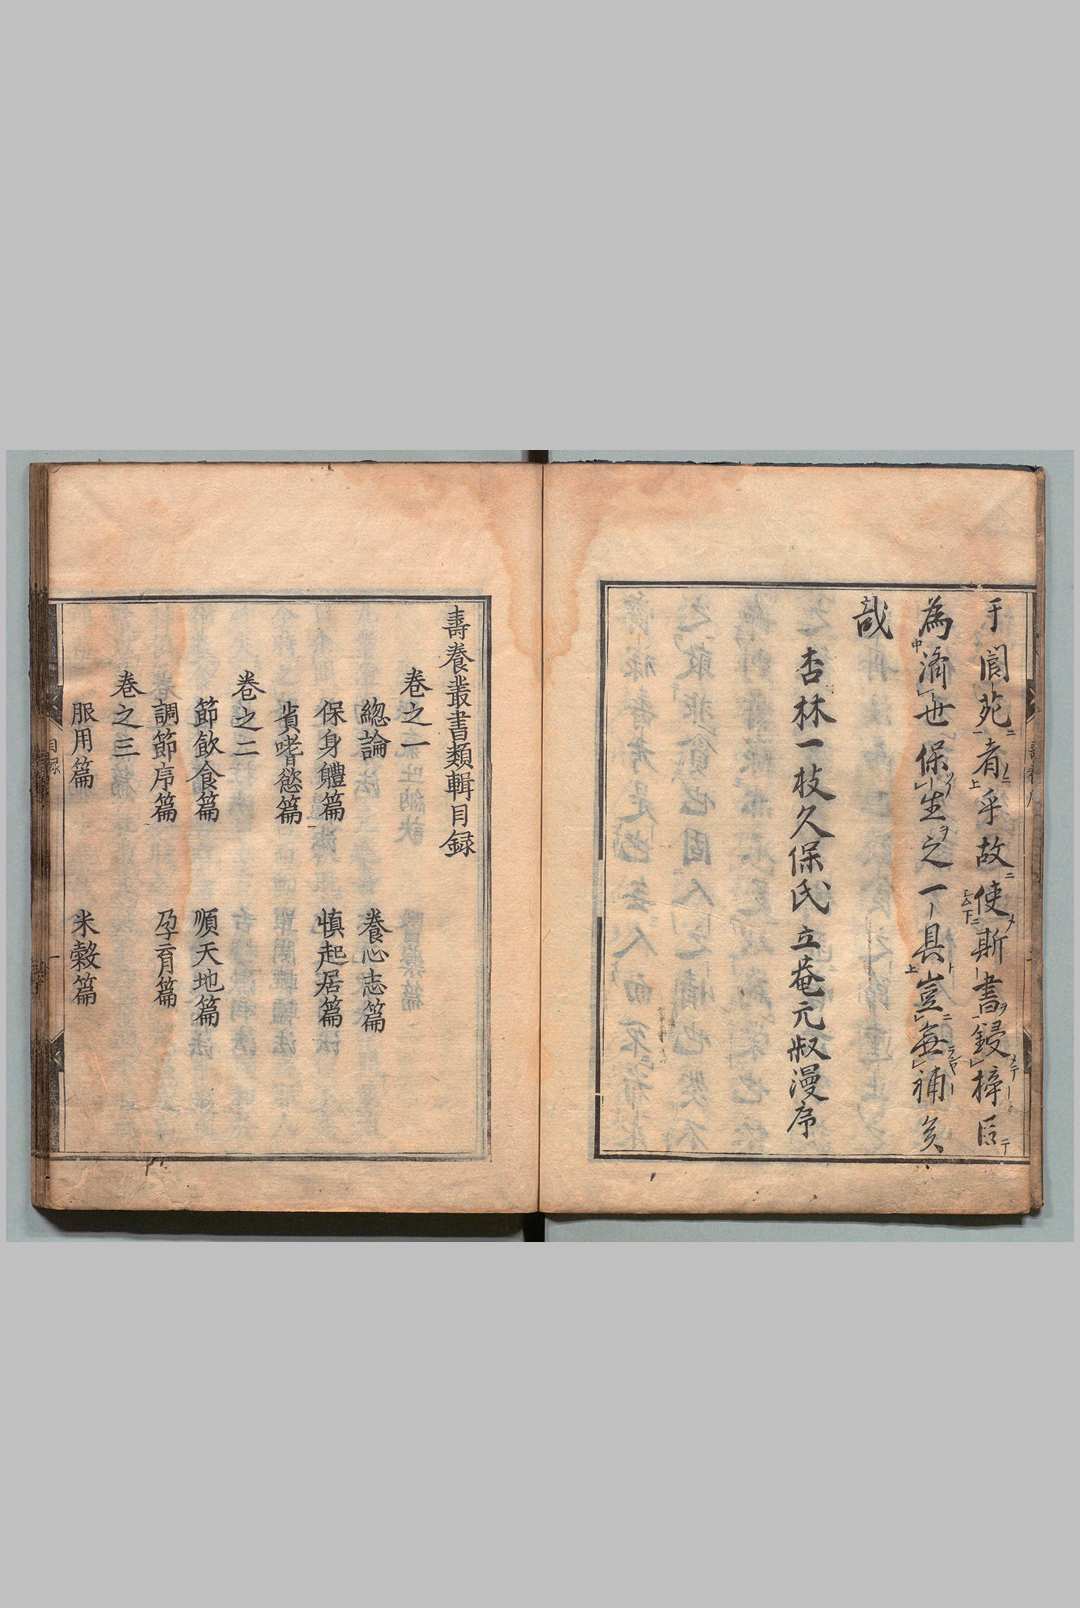 于閬苑者乎故使斯書鋟梓以
為濟世保生之一具豈無補矣
哉
杏林一枝久保氏立菴元叔漫序
壽養叢書類輯目録
卷之一
總論 養心志篇
保身體篇 慎起居篇
嗜慾篇
卷之二
節飲食篇 順天地篇
調節序篇 孕育篇
卷之三
服用篇 米穀篇
目録
一